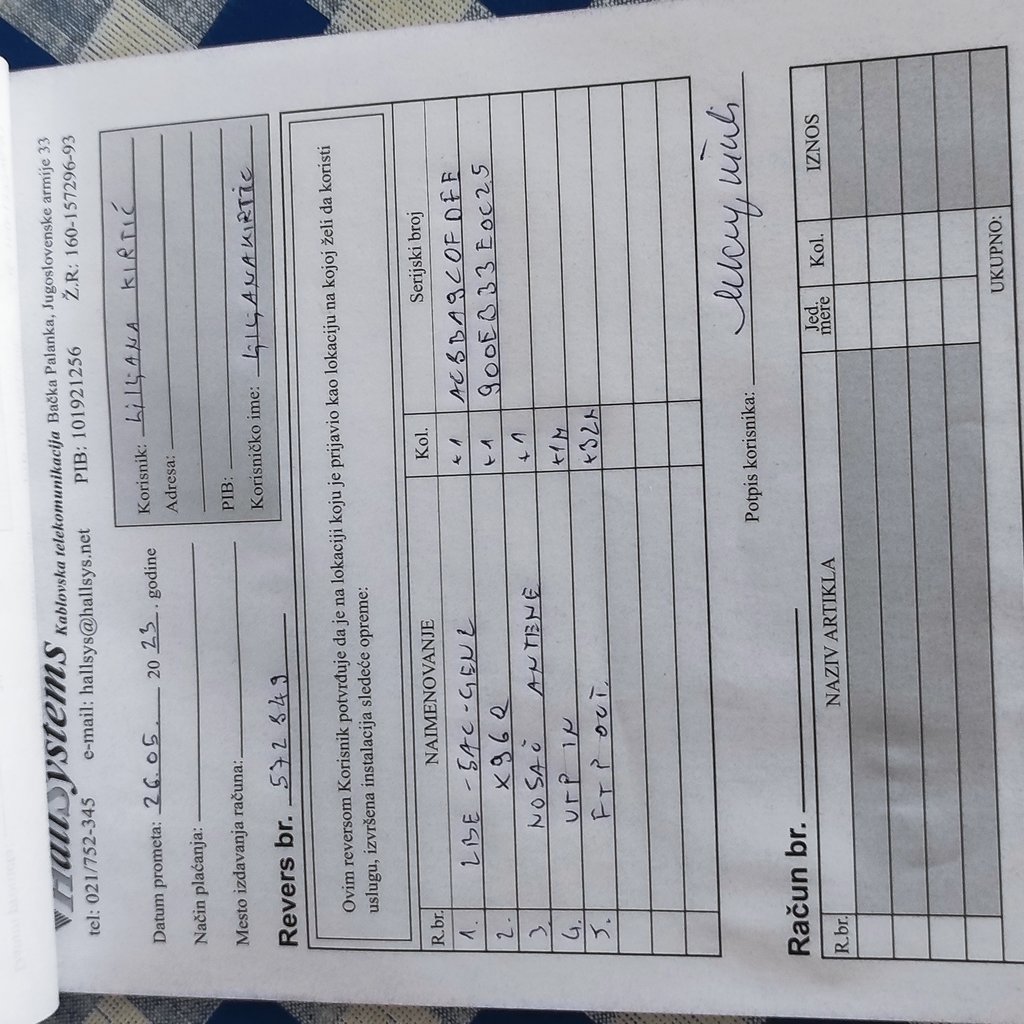 HallSystems Kablovska telekomunikacija Bačka Palanka, Jugoslovenske armije 33
tel: 021/752-345 e-mail: hallsys@hallsys.net PIB: 101921256 Ž.R: 160-157296-93
Datum prometa: 26.05. 20 23. godine
Način plaćanja:
Mesto izdavanja računa:
Korisnik: LILJANA KIRTIĆ
Adresa:
PIB:
Korisničko ime: LJILJANAKIRTIC
Revers br. 572849
Ovim reversom Korisnik potvrđuje da je na lokaciji koju je prijavio kao lokaciju na kojoj želi da koristi
uslugu, izvršena instalacija sledeće opreme:
R.br. NAIMENOVANJE Kol. Serijski broj
1. LBE-5AC-GEN2 +1
2. X96Q +1 900EB33E0C25
3. NOSAČ ANTENE +1
4. UTP IN +1M
5. FTP OUT
Potpis korisnika:
Račun br.
R.br. NAZIV ARTIKLA Jed. mere Kol. IZNOS
UKUPNO: